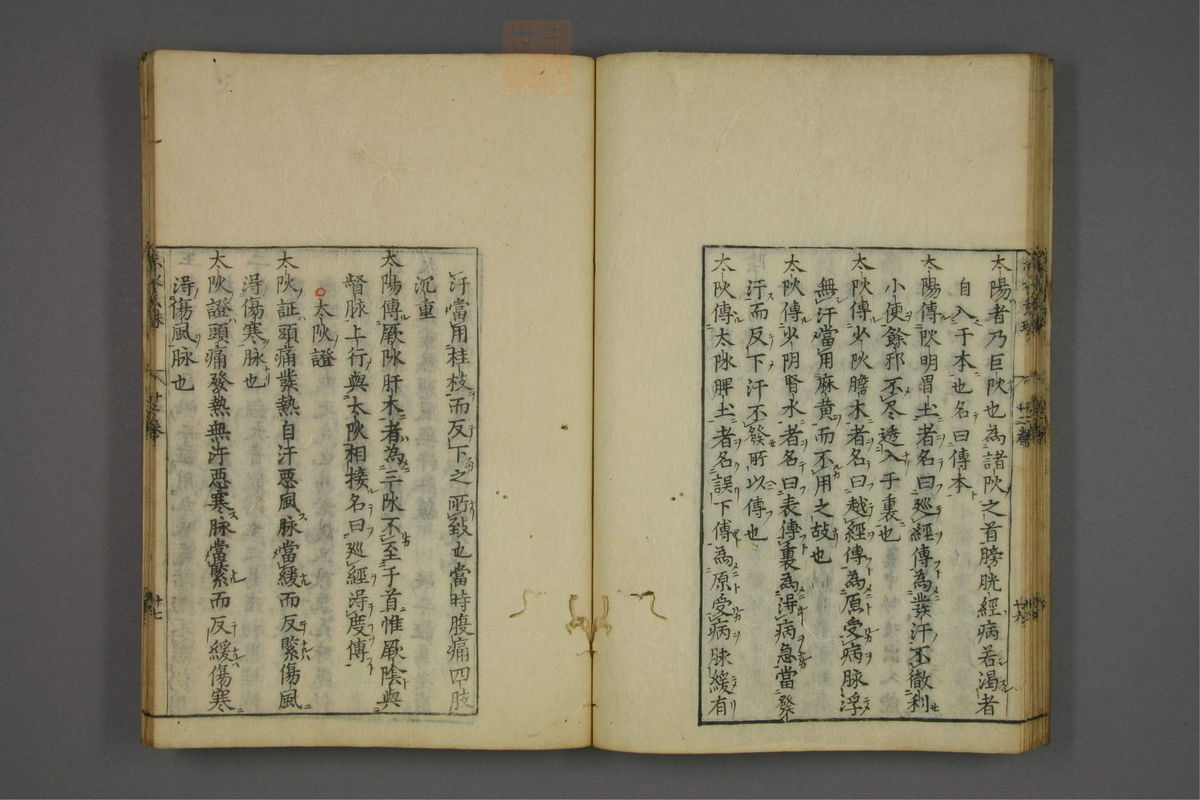 太陽者乃巨阦也為諸阦之首膀胱經病若渴者
自入于本也名曰傳本
太陽傳阦明胃土者名曰廵經傳為發汗不徹利
小便餘邪不尽透入于裏也
太阦傳少阦膽木者名曰越經傳為原受病脉浮
無汗當用麻黄而不用之故也
太阦傳少阴腎水者名曰表傳裏為淂病急當發
汗而反下汗不發所以傳也
太阦傳太阥脾土者名誤下傳為原受病脉緩有
汗當用桂枝而反下之所致也當時腹痛四肢
沉重
太陽傳厥阥肝木者為三阥不至于首惟厥陰與
督脉上行與太阦相接名曰廵經淂度傳
太阦證
太阦証頭痛發熱自汗惡風脉當緩而反緊傷風
淂傷寒脉也
太阦證頭痛發熱無汗惡寒脉當緊而反緩傷寒
淂傷風脉也
十七